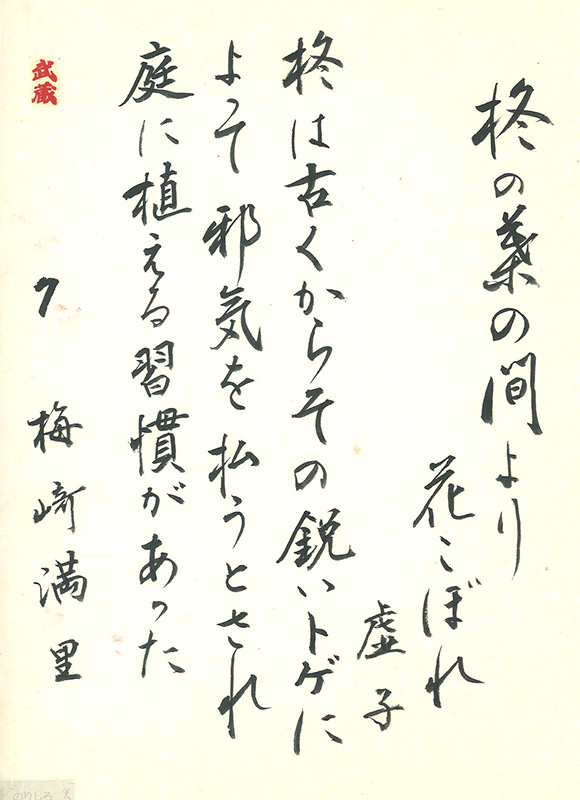 柊の葉の間より
花こぼれ
虚子
柊は古くからその鋭いトゲに
よって邪気を払うとされ
庭に植える習慣があった
7 梅崎満里
武蔵
のりしろ